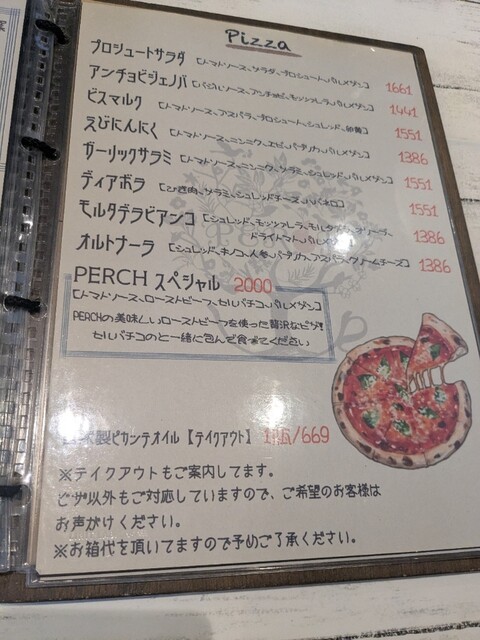 Pizza
プロシュートサラダ 【トマトソース、サラダ、プロシュート、パルメザン】 1661
アンチョビジェノバ 【バジルソース、アンチョビ、モッツァレラ、パルメザン】 1441
ビスマルク 【トマトソース、アスパラ、プロシュート、シュレッド、卵黄】 1551
えびにんにく 【トマトソース、ニンニク、エビ、パプリカ、パルメザン】 1386
ガーリックサラミ 【トマトソース、ニンニク、サラミ、シュレッド、パルメザン】 1551
ディアボラ 【ひき肉、サラミ、シュレッドチーズ、ハバネロ】 1551
モルタデラビアンコ 【シュレッド、モッツァレラ、モルタデラ、オリーブ、
ドライトマト、パルメザン】 1386
オルトナーラ 【シュレッド、キノコ、人参、パプリカ、アスパラ、クリームチーズ】 1386
PERCH スペシャル 2000
【トマトソース、ローストビーフ、セルバチコ、パルメザン】
PERCHの美味しいローストビーフを使った贅沢なピザ!
セルバチコのと一緒に包んで食ってください
製ピカンテオイル【テイクアウト】 /669
※テイクアウトもご案内してます。
ピザ以外もご対応していますので、ご希望のお客様は
お声がけください。
※お箱代を頂いてますので予めご了承ください。